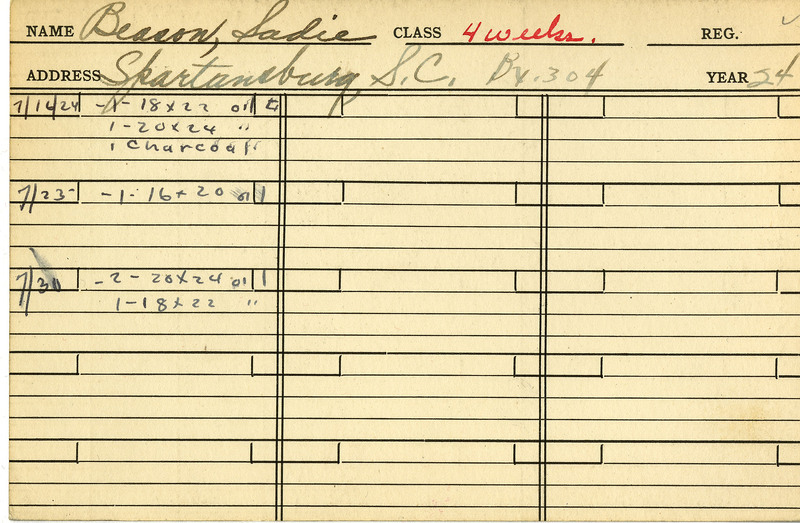 NAME Beason, Sadie CLASS 4 weeks. REG.
ADDRESS Spartansburg S.C. Bx. 304 YEAR 24
7/14/24 -1-18x22 oil
1-20x24 "
1 Charcoal
7/23 -1-16x20 oil 1
7/30 -2-20x24 oil 1
1-18x22 "